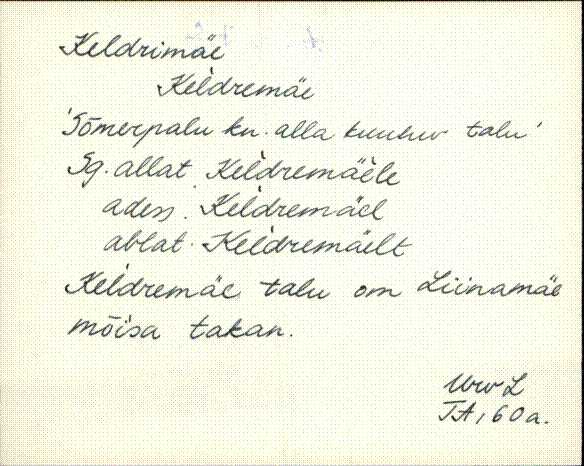 Keldrimäe
Kel'dremäe
'Sõmerpalu kn. alla kuuluv talu'
Sg. allat Kel'dremäele
adess. Kel'dremäel
ablat. Kel'dremäelt
Kel'dremäe talu om Liinamäe
mõisa takan.
Urv L
TA, 60a.